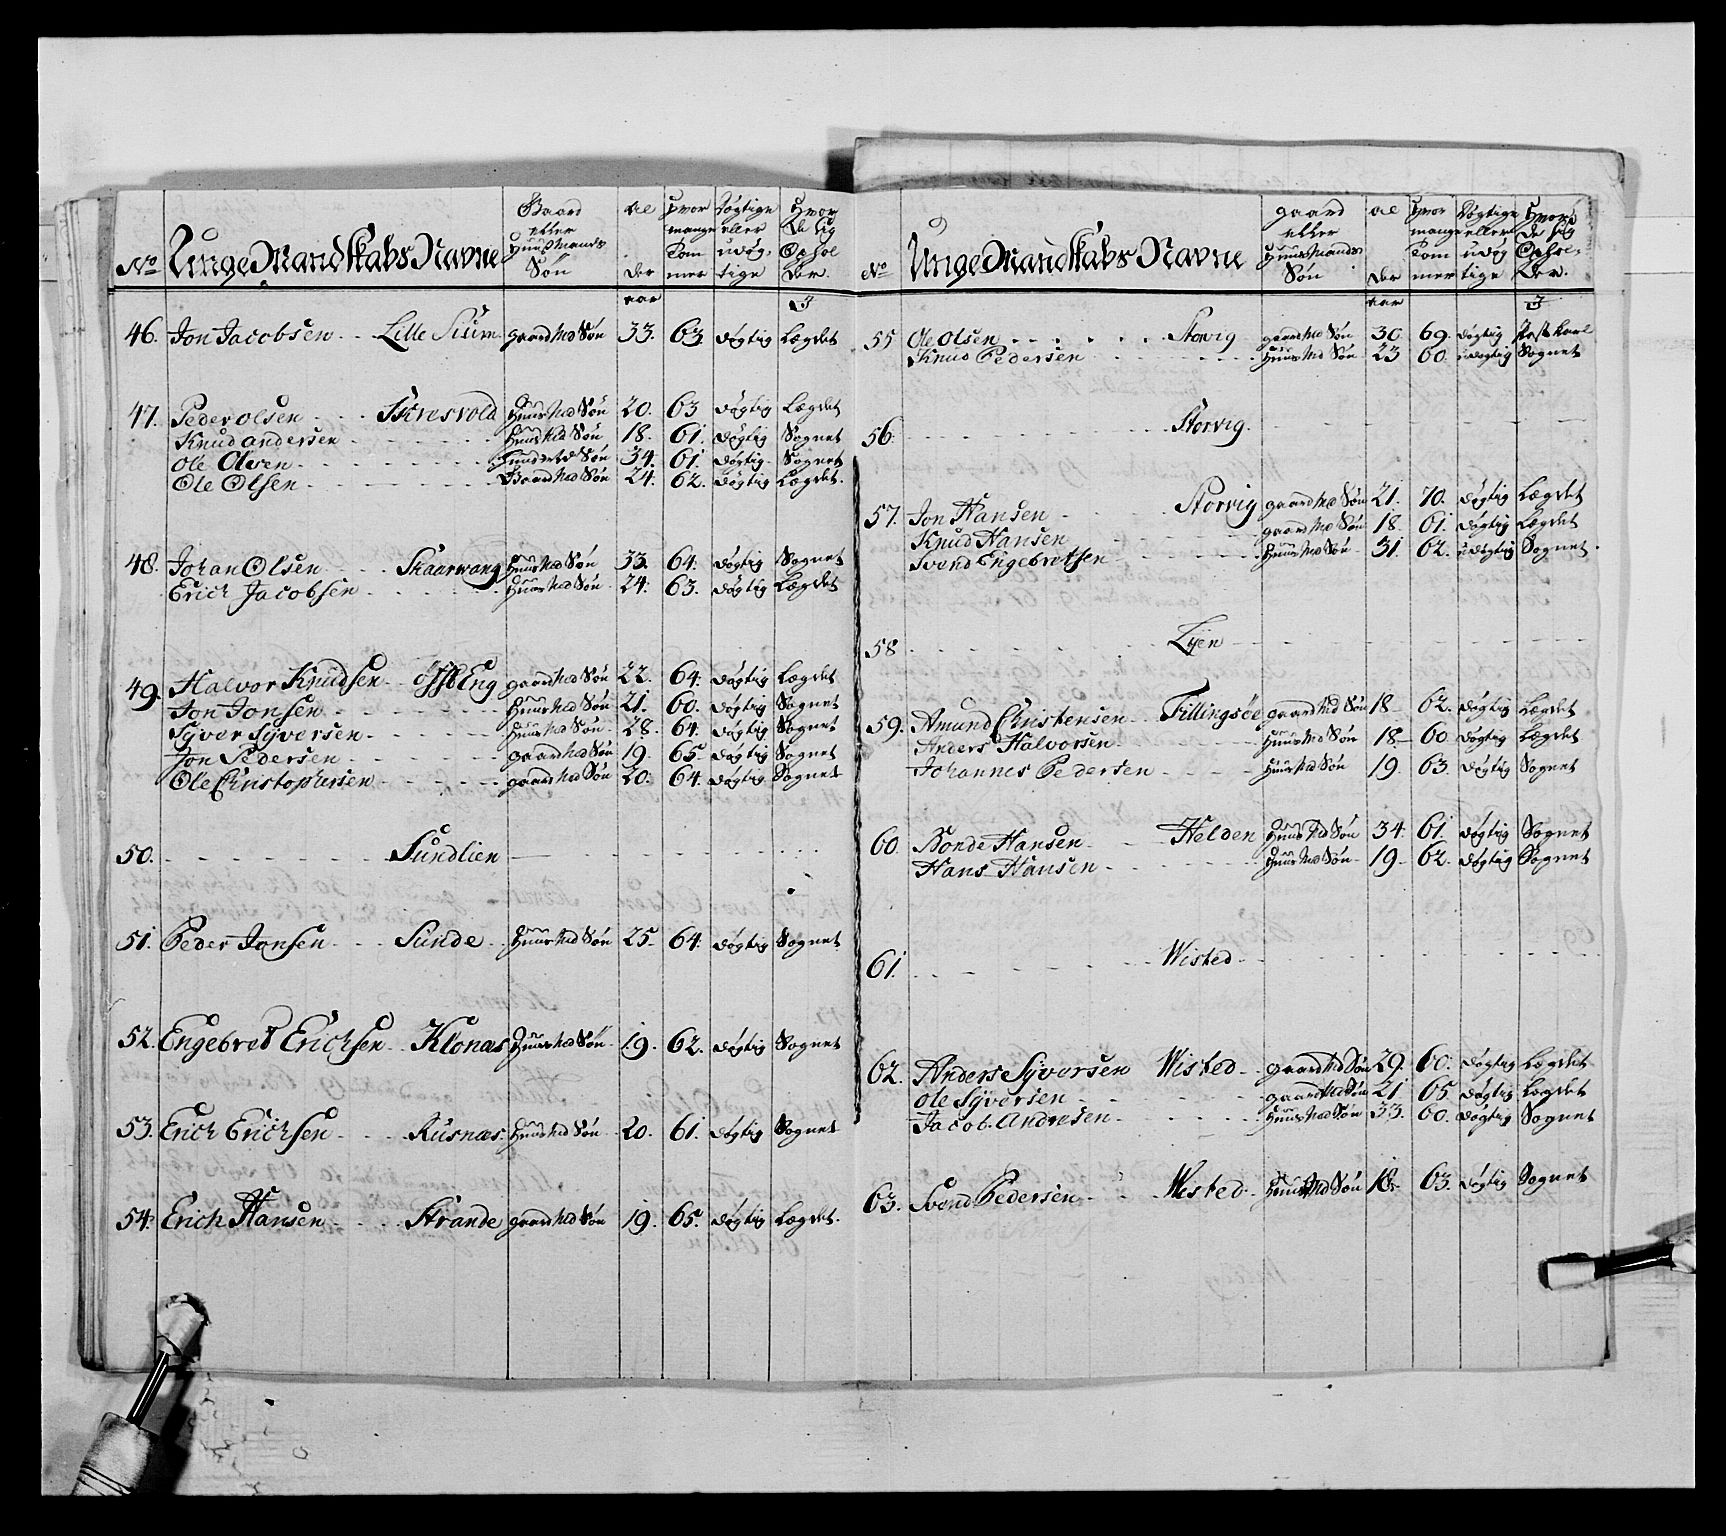 No Unge Mandskabs Navne Gaard eller Huusmands Søn Al der Hvor mange Tom mer Døgtige eller udøg tige Hvor De Sig Ophol Der.
aar I
46. Jon Jacobsen Lille Siüm gaard Md Søn 33. 63. døgtig Lægdet
47. Peder Olsen Skresvold Huus Md Søn 20. 63 døgtig Lægdet
Knud andersen Huus Md Søn 18. 61. døgtig Sognet
Ole Olsen Huus Md Søn 34. 61. døgtig Sognet
Ole Olsen Gaard Md Søn 24. 62. døgtig Lægdet.
48. Johan Olsen Skaarwang Huus Md Søn 33. 64. døgtig Sognet
Erich Jacobsen Huus Md Søn 24. 63. døgtig Lægdet
49. Halvor Knudsen Eng gaard Md Søn 22. 64. døgtig Lægdet
Jon Jonsen Huus Md Søn 21. 60. døgtig Sognet
Syver Syversen Huus Md Søn 28. 64. døgtig Sognet
Jon Pedersen gaard Md Søn 19. 65. døgtig Sognet
Ole Christophersen gaard Md Søn 20. 64. døgtig Sognet
50. Sundlien
51. Peder Jonsen Sunde Huus Md Søn 25. 64. døgtig Sognet
52. Engebret Erichsen Klonæs Huus Md Søn 19. 62. døgtig Sognet
53. Erich Erichsen Rusnæs Huus Md Søn 20. 61. døgtig Sognet
54. Erich Hansen Strande gaard Md Søn 19. 65. døgtig Lægdet.
No Unge Mandskabs Navne gaard eller Huusmands Søn al der Hvor mange Tom mer Døgtige eller udøg tige Hvor De Sig Ophol Der.
aar I
55 Ole Olsen Storvig gaard Md Søn 30. 69. døgtig Postkarl
Knud Pedersen Huus Md Søn 23 60. udøgtig Sognet
56. Storvig.
57. Jon Hansen Storvig gaard Md Søn 21. 70. døgtig Lægdet
Knud Hansen gaard Md Søn 18. 61. døgtig Lægdet
Svend Engebretsen Huus Md Søn 31. 62. udøgtig Sognet.
58 Lyen
59. Amund Christensen Fillingsøe gaard Md Søn 18 62. døgtig Lægdet
Anders Halvorsen Huus Md Søn 18 60 døgtig Lægdet
Johannes Pedersen Huus Md Søn 19. 63. døgtig Sognet
60. Bonde Hansen Helden Huus Md Søn 34. 61. døgtig Sognet
Hans Hansen Huus Md Søn 19. 62. døgtig Sognet
61. Wisted
62. Anders Syversen Wisted gaard Md Søn 29. 60. døgtig Lægdet
Ole Syversen gaard Md Søn 21 65. døgtig Lægdet
Jacob Andresen Huus Md Søn 33. 60. døgtig Sognet
63. Svend Pedersen Wisted Huus Md Søn 18. 63. døgtig Sognet